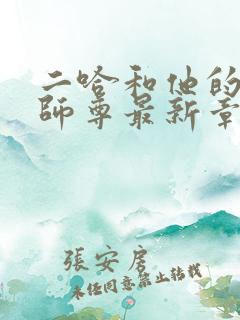 二哈和他的
師尊最新章
張安房
未经同意禁止转载